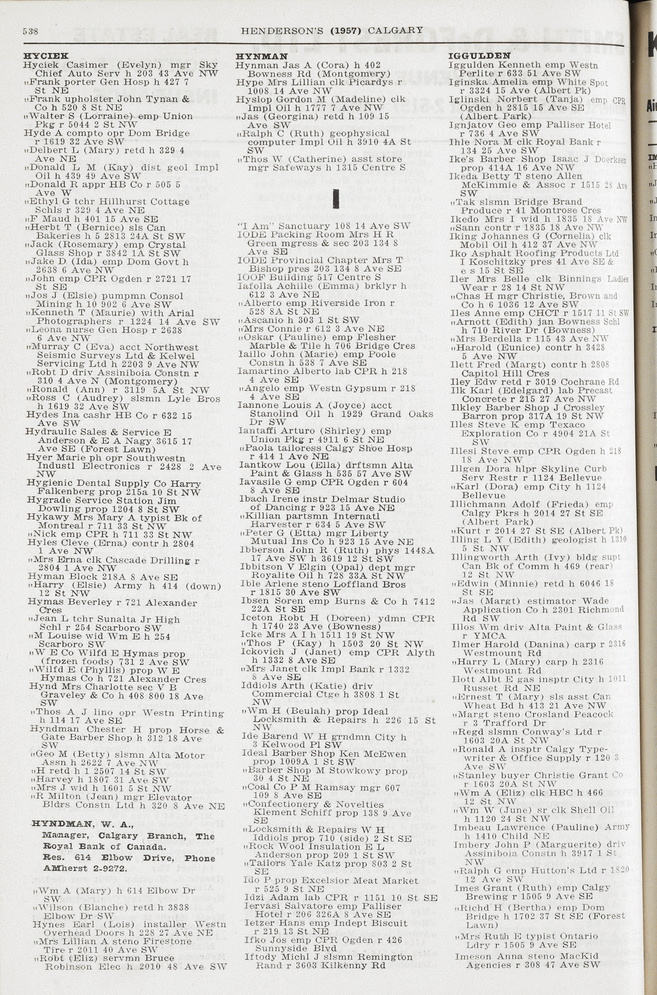 538
HENDERSON'S (1957) CALGARY
HYCIEK
Hyciek Casimer (Evelyn) mgr Sky
Chief Auto Serv h 203 43 Ave NW
„Frank porter Gen Hosp h 427 7
St NE
„Frank upholster John Tynan &
Co h 520 8 St NE
„Walter S (Lorraine) emp Union
Pkg r 5044 2 St NW
Hyde A compto opr Dom Bridge
r 1619 32 Ave SW
„Delbert L (Mary) retd h 329 4
Ave NE
„Donald L M (Kay) dist geol Impl
Oil h 439 49 Ave SW
„Donald R appr HB Co r 505 5
Ave W
„Ethyl G tchr Hillhurst Cottage
Schls r 329 4 Ave NE
„F Maud h 401 15 Ave SE
„Herbt T (Bernice) sls Can
Bakeries h 5 2813 24A St SW
„Jack (Rosemary) emp Crystal
Glass Shop r 3842 1A St SW
„Jake D (Ida) emp Dom Govt h
2638 6 Ave NW
„John emp CPR Ogden r 2721 17
St SE
„Jos J (Elsie) pumpmn Consol
Mining h 10 902 6 Ave SW
„Kenneth T (Maurie) with Arial
Photographers r 1224 14 Ave SW
„Leona nurse Gen Hosp r 2638
6 Ave NW
„Murray C (Eva) acct Northwest
Seismic Surveys Ltd & Kelwel
Servicing Ltd h 2203 9 Ave NW
„Robt D driv Assiniboia Constn r
310 4 Ave N (Montgomery)
„Ronald (Ann) r 3119 5A St NW
„Ross C (Audrey) slsmn Lyle Bros
h 1619 32 Ave SW
Hydes Ina cashr HB Co r 632 15
Ave SW
Hydraulic Sales & Service E
Anderson & E A Nagy 3615 17
Ave SE (Forest Lawn)
Hyer Marie ph opr Southwestn
Industl Electronics r 2428 2 Ave
NW
Hygienic Dental Supply Co Harry
Falkenberg prop 215a 10 St NW
Hygrade Service Station Jim
Dowling prop 1204 8 St SW
Hykawy Mrs Mary A typist Bk of
Montreal r 711 33 St NW
„Nick emp CPR h 711 33 St NW
Hyles Cleve (Erna) contr h 2804
1 Ave NW
„Mrs Erna clk Cascade Drilling r
2804 1 Ave NW
Hyman Block 218A 8 Ave SE
„Harry (Elsie) Army h 414 (down)
12 St NW
Hymas Beverley r 721 Alexander
Cres
„Jean L tchr Sunalta Jr High
Schl r 254 Scarboro SW
„M Louise wid Wm E h 254
Scarboro SW
„W E Co Wilfd E Hymas prop
(frozen foods) 731 2 Ave SW
„Wilfd E (Phyllis) prop W E
Hymas Co h 721 Alexander Cres
Hynd Mrs Charlotte sec V B
Graveley & Co h 408 800 18 Ave
SW
„Thos A J lino opr Westn Printing
h 114 17 Ave SE
Hyndman Chester H prop Horse &
Gate Barber Shop h 312 18 Ave
SW
„Geo M (Betty) slsmn Alta Motor
Assn h 2622 7 Ave NW
„H retd h 1 2507 14 St SW
„Harvey h 1807 31 Ave SW
„Mrs J wid h 1601 5 St NW
„R Milton (Jean) mgr Elevator
Bldrs Constn Ltd h 320 8 Ave NE
HYNDMAN, W. A.,
Manager, Calgary Branch, The
Royal Bank of Canada.
Res. 614 Elbow Drive, Phone
AMherst 2-9272.
„Wm A (Mary) h 614 Elbow Dr
SW
„Wilson (Blanche) retd h 3838
Elbow Dr SW
Hynes Earl (Lois) installer Westn
Overhead Doors h 228 27 Ave NE
„Mrs Lillian A steno Firestone
Tire r 2011 40 Ave SW
„Robt (Eliz) servmn Bruce
Robinson Elec h 2010 48 Ave SW
HYNMAN
Hynman Jas A (Cora) h 402
Bowness Rd (Montgomery)
Hype Mrs Lillian clk Picardys r
1008 14 Ave NW
Hyslop Gordon M (Madeline) clk
Impl Oil h 1777 7 Ave NW
„Jas (Georgina) retd h 109 15
Ave SW
„Ralph C (Ruth) geophysical
computer Impl Oil h 3910 4A St
SW
„Thos W (Catherine) asst store
mgr Safeways h 1315 Centre S
I
"I Am" Sanctuary 108 14 Ave SW
IODE Packing Room Mrs H R
Green mgress & sec 203 134 8
Ave SE
IODE Provincial Chapter Mrs T
Bishop pres 203 134 8 Ave SE
IOOF Building 517 Centre S
Iafolla Achille (Emma) brklyr h
612 3 Ave NE
„Alberto emp Riverside Iron r
528 8A St NE
„Ascanio h 303 1 St SW
„Mrs Connie r 612 3 Ave NE
„Oskar (Pauline) emp Flesher
Marble & Tile h 706 Bridge Cres
Iaillo John (Marie) emp Poole
Constn h 538 7 Ave SE
Iamartino Alberto lab CPR h 218
4 Ave SE
„Angelo emp Westn Gypsum r 218
4 Ave SE
Iannone Louis A (Joyce) acct
Stanolind Oil h 1929 Grand Oaks
Dr SW
Iantaffi Arturo (Shirley) emp
Union Pkg r 4911 6 St NE
„Paola tailoress Calgy Shoe Hosp
r 414 1 Ave NE
Iantkow Lou (Ella) drftsmn Alta
Paint & Glass h 535 57 Ave SW
Iavasile G emp CPR Ogden r 604
8 Ave SE
Ibach Irene instr Delmar Studio
of Dancing r 923 15 Ave NE
„Killian partsmn Internatl
Harvester r 634 5 Ave SW
„Peter G (Etta) mgr Liberty
Mutual Ins Co h 923 15 Ave NE
Ibberson John R (Ruth) phys 1448A
17 Ave SW h 3619 12 St SW
Ibbitson V Elgin (Opal) dept mgr
Royalite Oil h 728 33A St NW
Ible Arlene steno Loffland Bros
r 1815 30 Ave SW
Ibsen Soren emp Burns & Co h 7412
22A St SE
Iceton Robt H (Doreen) ydmn CPR
h 1740 23 Ave (Bowness)
Icke Mrs A I h 1511 19 St NW
„Thos P (Kay) h 1503 20 St NW
Ickovich J (Janet) emp CPR Alyth
h 1332 8 Ave SE
„Mrs Janet clk Impl Bank r 1332
8 Ave SE
Iddiols Arth (Katie) driv
Commercial Ctge h 3808 1 St
NW
„Wm H (Beulah) prop Ideal
Locksmith & Repairs h 226 15 St
NW
Ide Barend W H grndmn City h
3 Kelwood Pl SW
Ideal Barber Shop Ken McEwen
prop 1009A 1 St SW
„Barber Shop M Stowkowy prop
30 4 St NE
„Coal Co P M Ramsay mgr 607
109 8 Ave SE
„Confectionery & Novelties
Klement Schiff prop 138 9 Ave
SE
„Locksmith & Repairs W H
Iddiols prop 710 (side) 2 St SE
„Rock Wool Insulation E L
Anderson prop 209 1 St SW
„Tailors Yale Katz prop 803 2 St
SE
Ido P prop Excelsior Meat Market
r 525 9 St NE
Idzi Adam lab CPR r 1151 10 St SE
Iervasi Salvatore emp Palliser
Hotel r 206 326A 8 Ave SW
Ietzer Hans emp Indept Biscuit
r 219 13 St NE
Ifko Jos emp CPR Ogden r 426
Sunnyside Blvd
Iftody Michl J slsmn Remington
Rand r 3603 Kilkenny Rd
IGGULDEN
Iggulden Kenneth emp Westn
Perlite r 633 51 Ave SW
Iginska Amelia emp White Spot
r 3324 15 Ave (Albert Pk)
Iglinski Norbert (Tanja) emp CPR
Ogden h 2815 15 Ave SE
(Albert Park)
Ignjatov Geo emp Palliser Hotel
r 736 4 Ave SW
Ihle Nora M clk Royal Bank r
134 25 Ave SW
Ike's Barber Shop Isaac J Doerksen
prop 414A 16 Ave NW
Ikeda Betty T steno Allen
McKimmie & Assoc r 1515 28 Ave
SW
„Tak slsmn Bridge Brand
Produce r 41 Montrose Cres
Ikedo Mrs I wid h 1835 18 Ave NW
„Sann contr r 1835 18 Ave NW
Iking Johannes G (Cornelia) clk
Mobil Oil h 412 37 Ave NW
Iko Asphalt Roofing Products Ltd
I Koschitzky pres 41 Ave SE &
e s 15 St SE
Iler Mrs Belle clk Binnings Ladies
Wear r 28 14 St NW
„Chas H mgr Christie, Brown and
Co h 6 1036 12 Ave SW
Iles Anne emp CHCT r 1517 11 St SW
„Arnott (Edith) jan Bowness Schl
h 710 River Dr (Bowness)
„Mrs Berdella r 115 43 Ave NW
„Harold (Eunice) contr h 3428
5 Ave NW
Ilett Fred (Margt) contr h 2808
Capitol Hill Cres
Iley Edw retd r 3019 Cochrane Rd
Ilk Karl (Edelgard) lab Precast
Concrete r 215 27 Ave NW
Ilkley Barber Shop J Crossley
Barron prop 317A 19 St NW
Illes Steve K emp Texaco
Exploration Co r 4904 21A St
SW
Illesi Steve emp CPR Ogden h 218
18 Ave NW
Illgen Dora hlpr Skyline Curb
Serv Restr r 1124 Bellevue
„Karl (Dora) emp City h 1124
Bellevue
Illichmann Adolf (Frieda) emp
Calgy Pkrs h 2014 27 St SE
(Albert Park)
„Kurt r 2014 27 St SE (Albert Pk)
Illing L Y (Edith) geologist h 1310
5 St NW
Illingworth Arth (Ivy) bldg supt
Can Bk of Comm h 469 (rear)
12 St NW
„Edwin (Minnie) retd h 6046 18
St SE
„Jas (Margt) estimator Wade
Application Co h 2301 Richmond
Rd SW
Illos Wm driv Alta Paint & Glass
r YMCA
Ilmer Harold (Danina) carp r 2316
Westmount Rd
„Harry L (Mary) carp h 2316
Westmount Rd
Ilott Albt E gas insptr City h 1011
Russet Rd NE
„Ernest T (Mary) sls asst Can
Wheat Bd h 413 21 Ave NW
„Margt steno Crosland Peacock
r 3 Trafford Dr
„Regd slsmn Conway's Ltd r
1603 20A St NW
„Ronald A insptr Calgy Type-
writer & Office Supply r 120 3
Ave SW
„Stanley buyer Christie Grant Co
r 1603 20A St NW
„Wm A (Eliz) clk HBC h 466
12 St NW
„Wm W (June) sr clk Shell Oil
h 1120 24 St NW
Imbeau Lawrence (Pauline) Army
h 1410 Child NE
Imbery John P (Marguerite) driv
Assiniboia Constn h 3917 1 St
NW
„Ralph G emp Hutton's Ltd r 1820
12 Ave SW
Imes Grant (Ruth) emp Calgy
Brewing r 1505 9 Ave SE
„Richd H (Bertha) emp Dom
Bridge h 1702 37 St SE (Forest
Lawn)
„Mrs Ruth E typist Ontario
Ldry r 1505 9 Ave SE
Imeson Anna steno MacKid
Agencies r 308 47 Ave SW